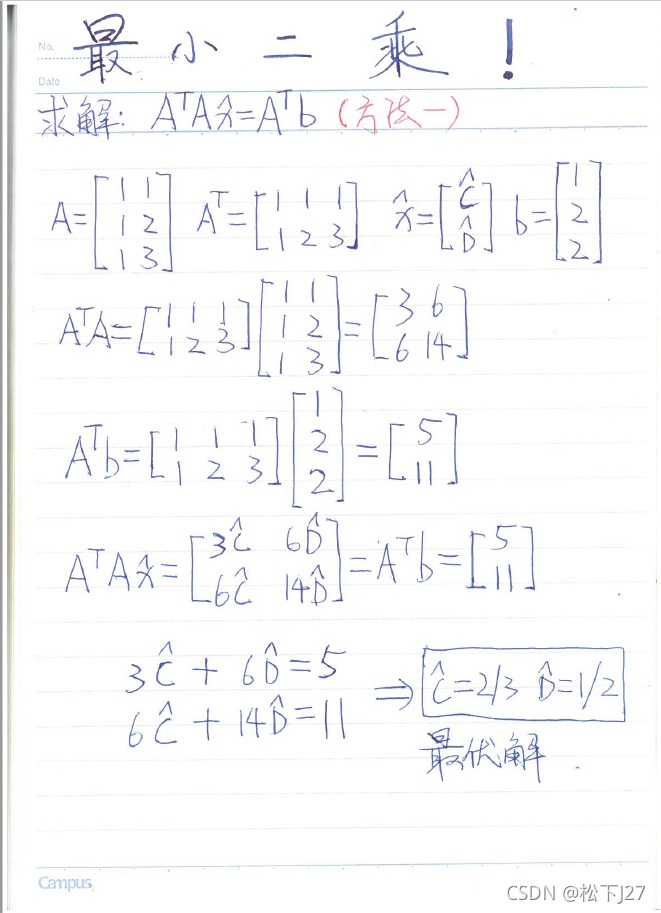 No.
Date
最小二乘!
求解: AᵀAx̂=Aᵀb (方法一)
A=[1 1; 1 2; 1 3] Aᵀ=[1 1 1; 1 2 3] x̂=[Ĉ; D̂] b=[1; 2; 2]
AᵀA=[1 1 1; 1 2 3][1 1; 1 2; 1 3]=[3 6; 6 14]
Aᵀb=[1 1 1; 1 2 3][1; 2; 2]=[5; 11]
AᵀAx̂=[3Ĉ 6D̂; 6Ĉ 14D̂]=Aᵀb=[5; 11]
3Ĉ + 6D̂=5
6Ĉ + 14D̂=11
⇒ Ĉ=2/3 D̂=1/2
最优解.
Campus
CSDN @松下J27